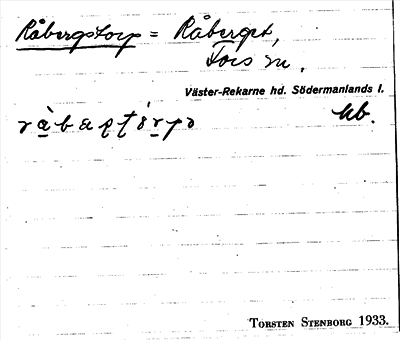 Råbergstorp = Råberget,
Tors sn.
Väster-Rekarne hd. Södermanlands l.
hb.
TORSTEN STENBORG 1933.